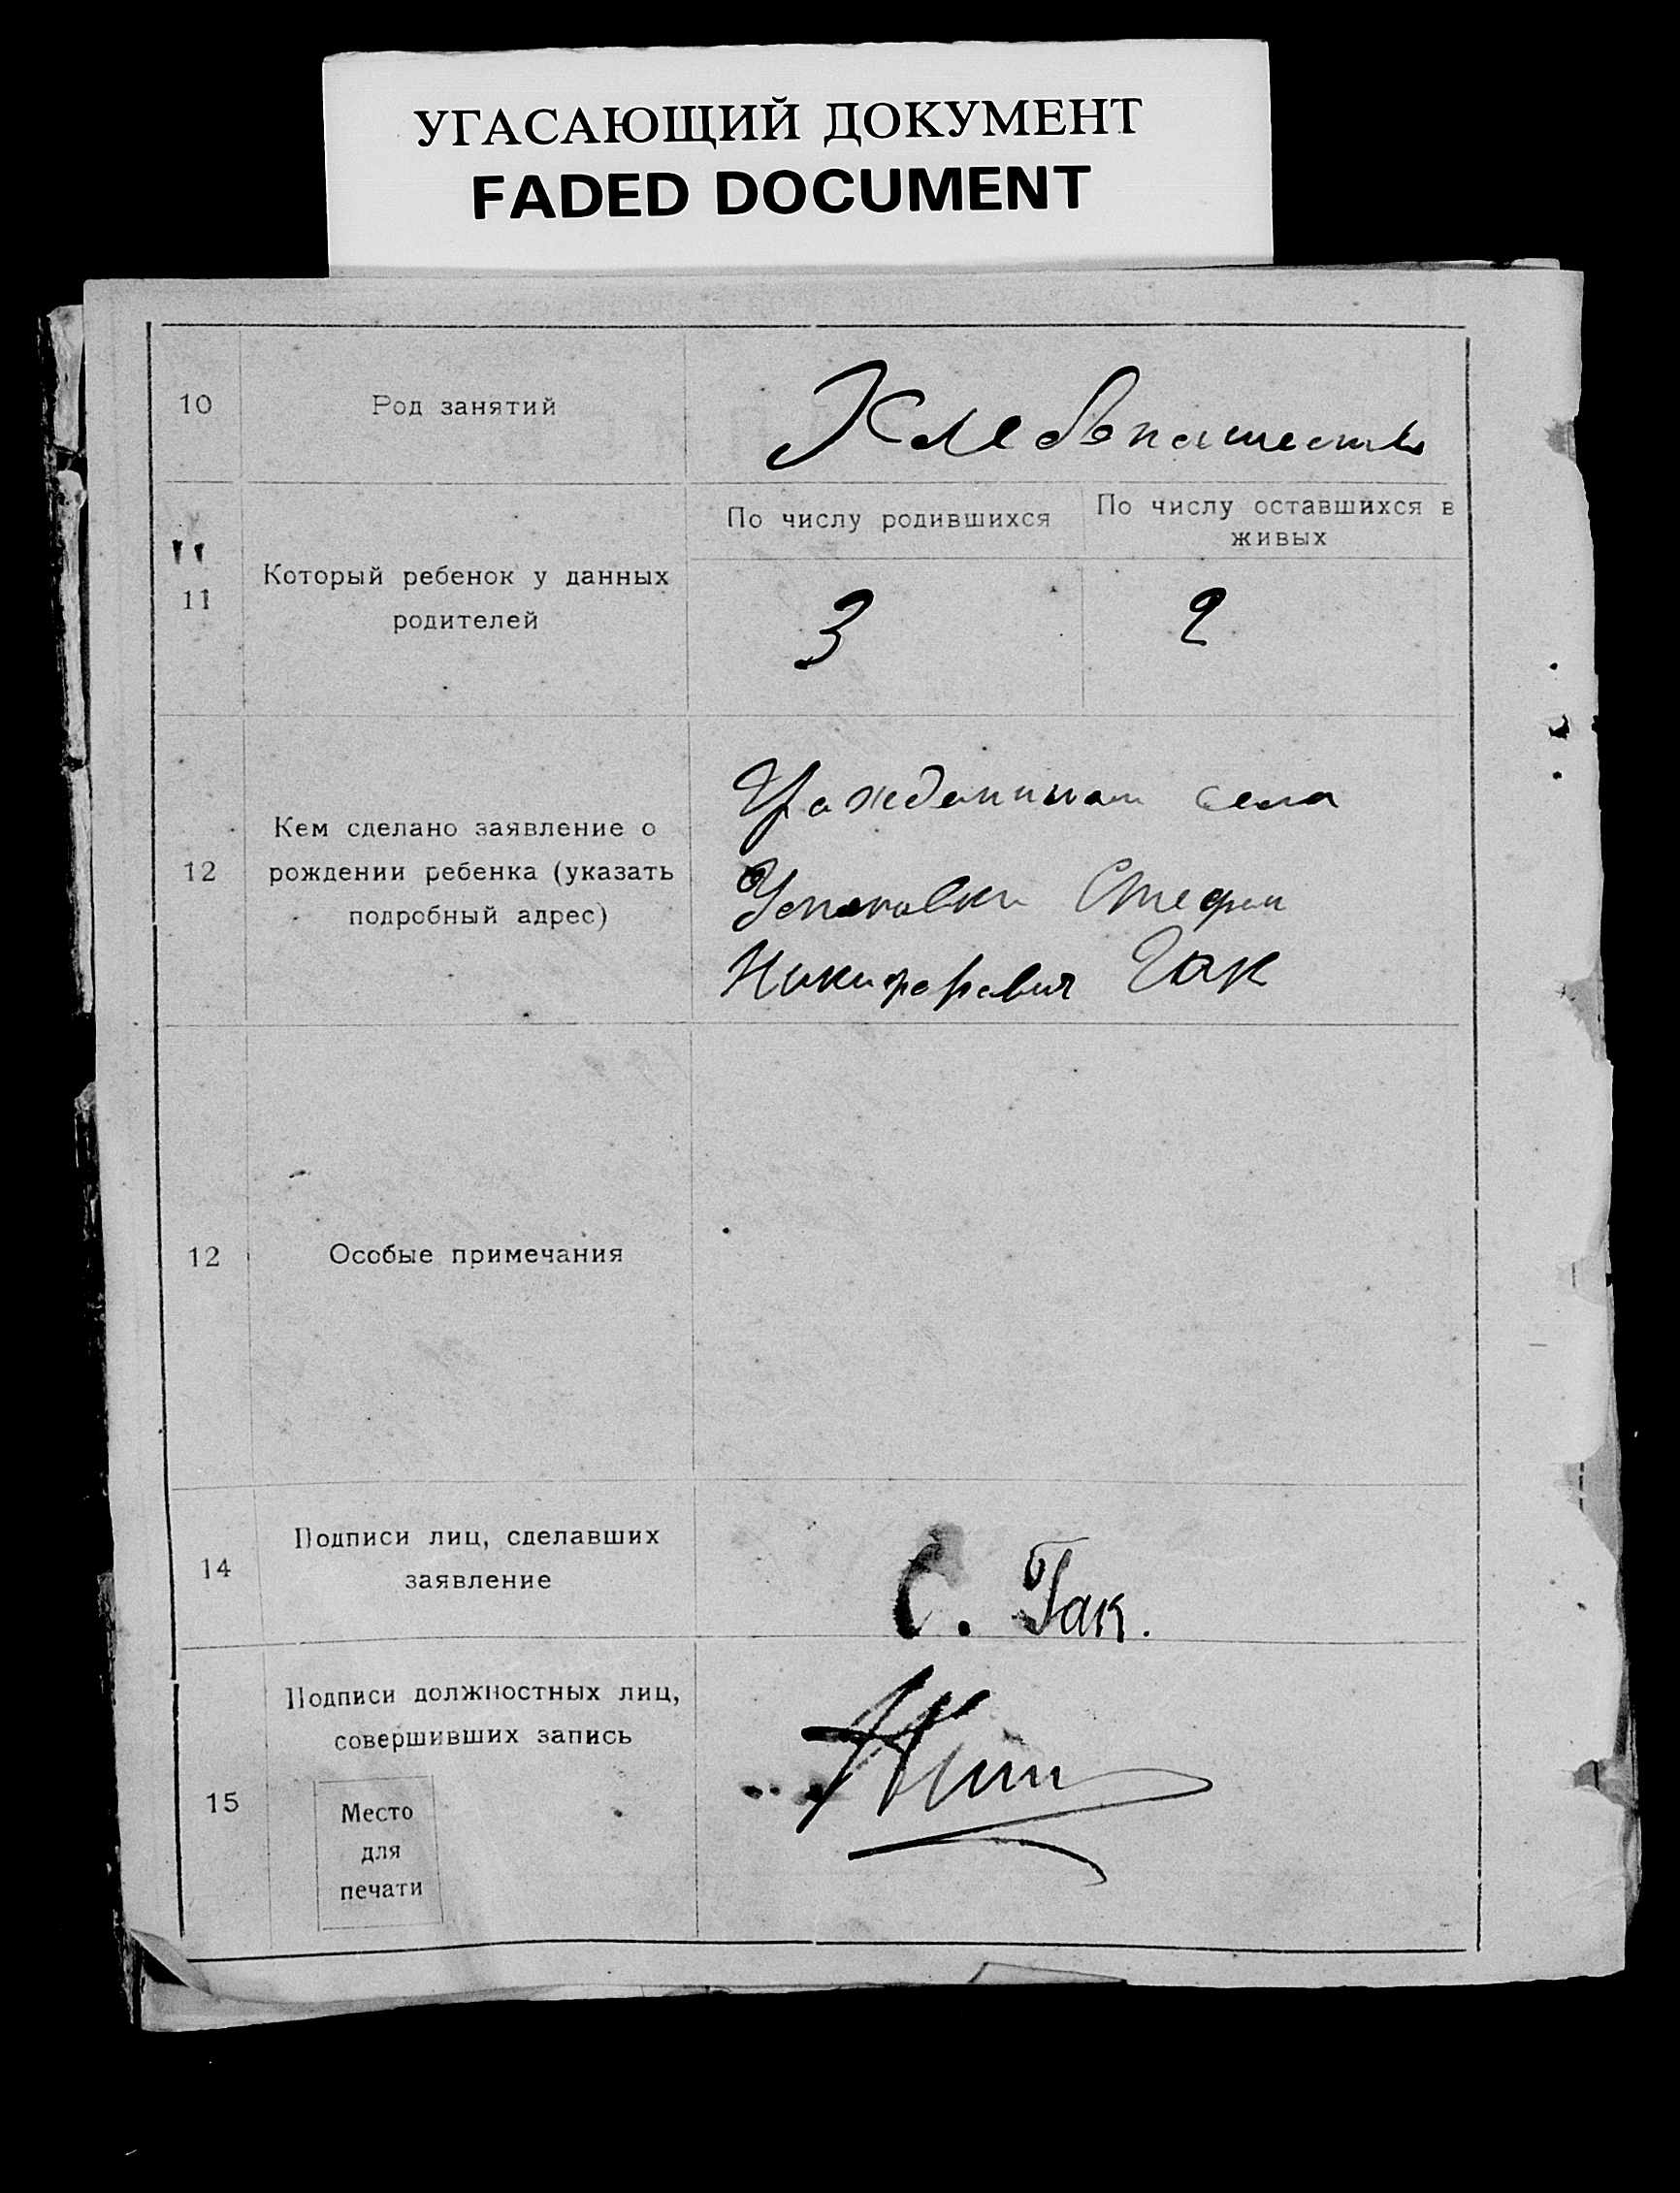 УГАСАЮЩИЙ ДОКУМЕНТ
FADED DOCUMENT
10
Род занятий
11
Который ребенок у данных
родителей
По числу родившихся
По числу оставшихся в
живых
3
2
12
Кем сделано заявление о
рождении ребенка (указать
подробный адрес)
Гражданином села
Стефан
Никифорович Гак
12
Особые примечания
14
Подписи лиц, сделавших
заявление
С. Гак.
15
Подписи должностных лиц,
совершивших запись
Место
для
печати